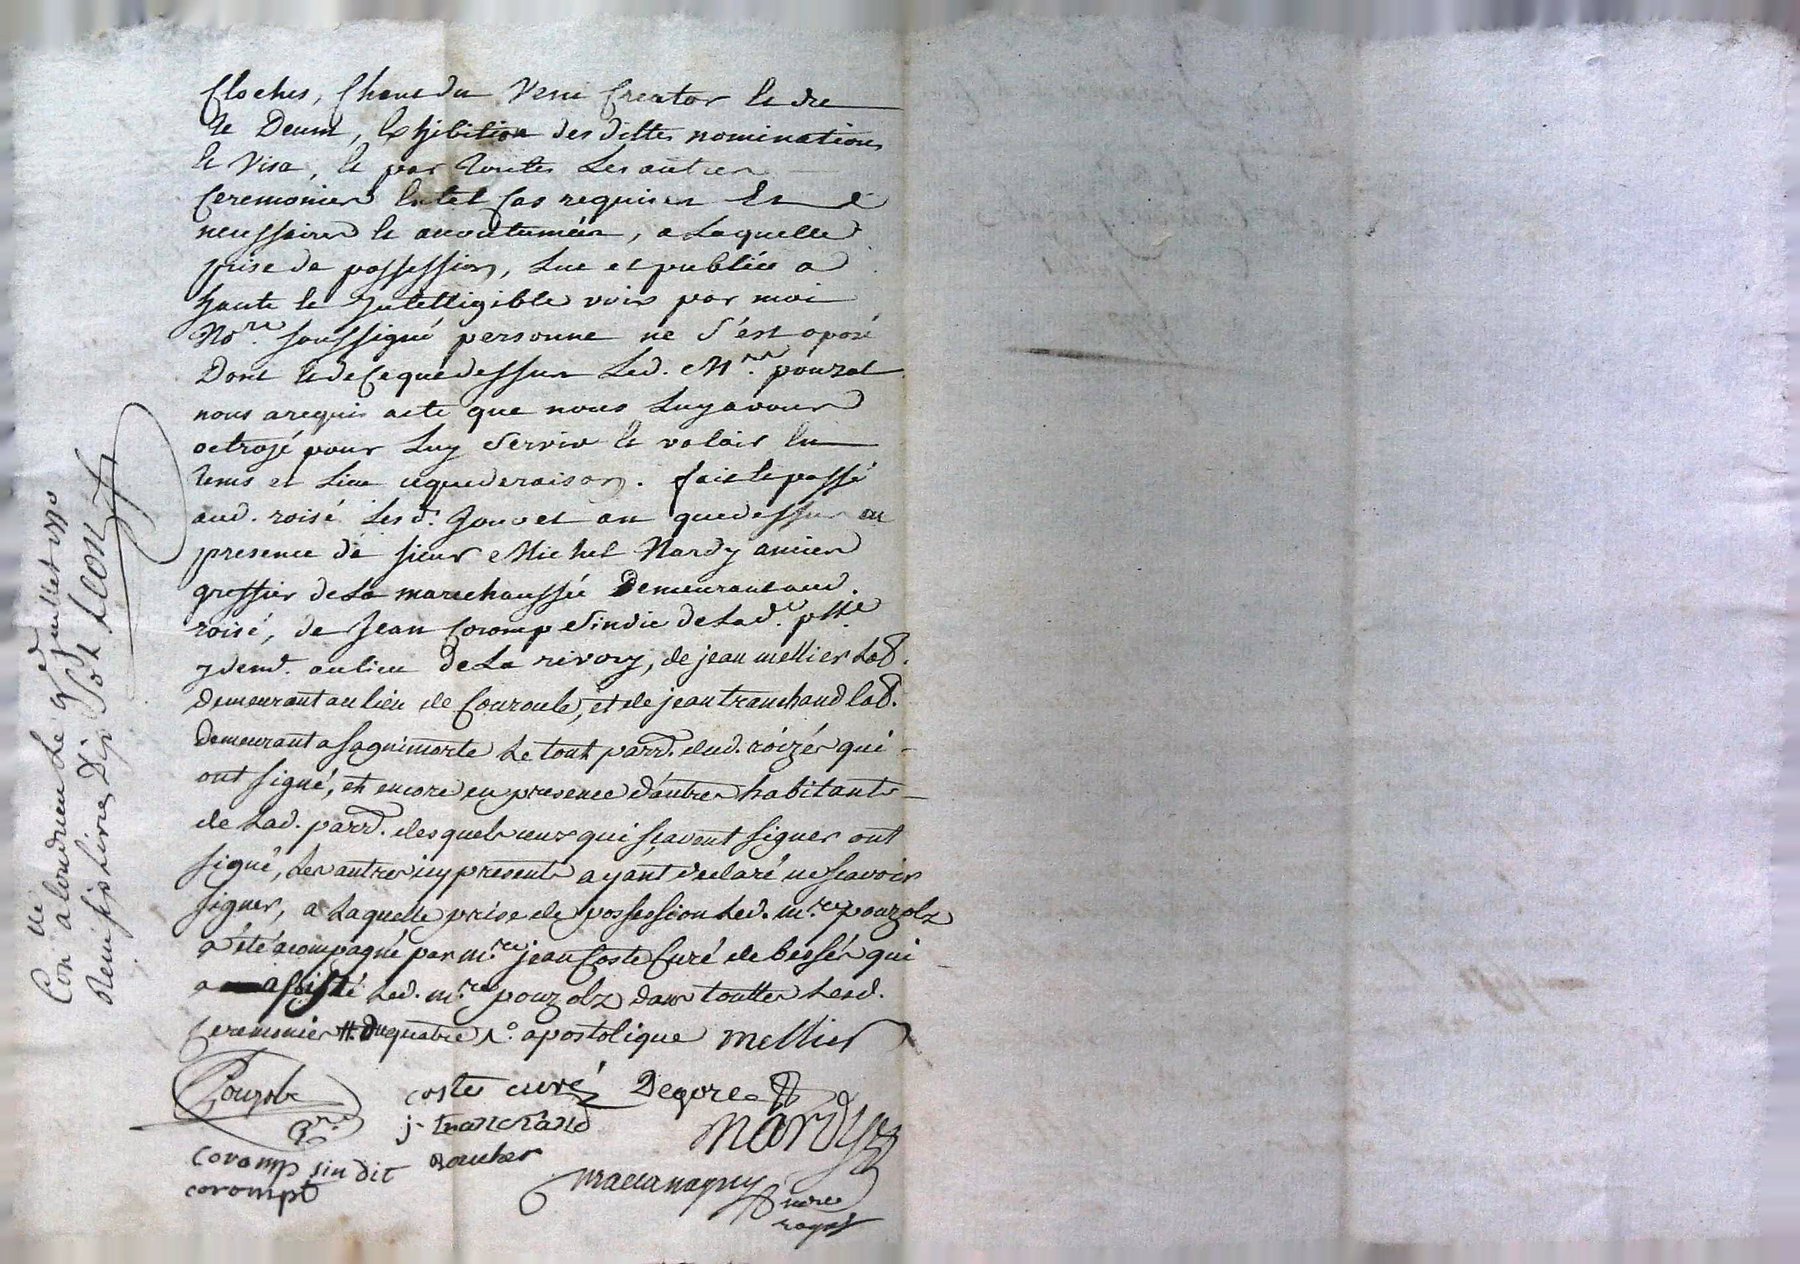 Cloches, Chant du Veni Creator et du
te Deum, Exhibition des dittes nominations
et Visa, et par toutes Les autres
Ceremonies En tel Cas requises Et
necessaires et accoutumées, a Laquelle
prise de possession, Lue et publiée a
haute et Intelligible voix par moi
No.re soussigné personne ne S'est oposé
Dont et de Ce que dessus Led. M.re pouzol
nous a requis acte que nous Luy avons
octrojé pour Luy Servir et valoir En
tems et Lieu ce que de raison. fait et passé
aud. roisé Lesd. Jour et an que dessus en
presence de sieur Michel Nardy ancien
greffier de La marechaussée Demeurant aud.
roisé, de Jean Coromp Sindic de Lad.e p.sse
y dem.t au lieu De La rivory, de jean mellier Lab.
demeurant au lieu de Couroule, et de jean tranchand lab.
demeurant a saquimorte Le tout parr. dud. roizés qui
ont signé, et encore en presence d'autres habitants
de Lad. parr. desquels ceux qui sçavent signer ont
signé, Les autres icy presents ayant declaré ne scavoir
signer, a Laquelle prise de possession Led. m.re pouzolz
a été acompagné par m.re jean Coste Curé de bessés qui
a assisté Led. m.re pouzolz dans touttes Lesd.
Ceremonies #. Duquatre N.e apostolique mellier
Pouzols
coste curé
Degore
p.re
j. tranchand
Nardy
Coromp sindit
boucher
corompt
Con.lé a Lendreu Le 9 juillet 1770
Reçu six livres Dix Sols LEON